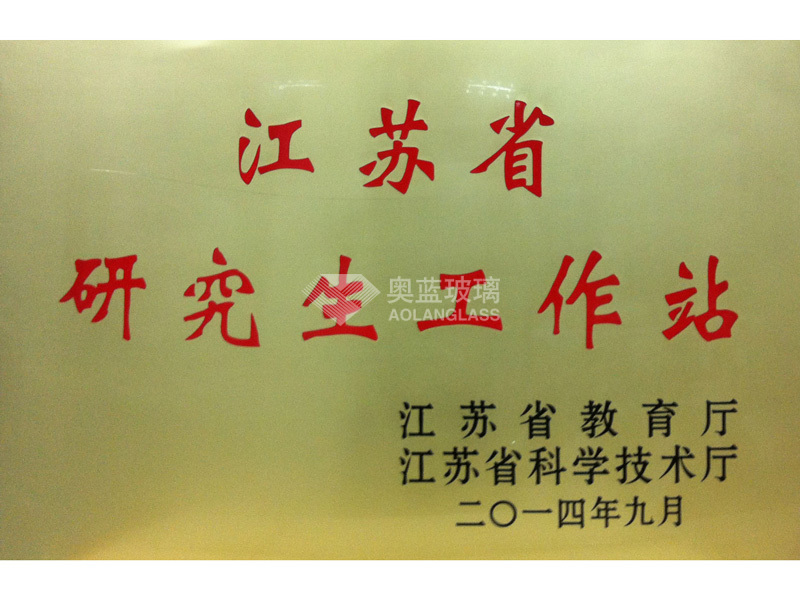 江苏省
研究生工作站
奥蓝玻璃
AOLANGLASS
江苏省教育厅
江苏省科学技术厅
二〇一四年九月